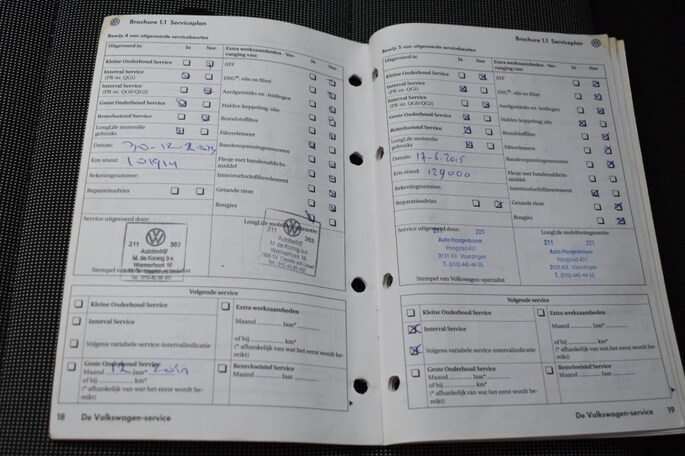 Brochure 1.1 Serviceplan
Bewijs 4 van uitgevoerde servicebeurten
Uitgevoerd is: Ja Nee
Kleine Onderhoud Service
Interval Service
(PR-nr. QG1)
Interval Service
(PR-nr. QG0/QG2)
Grote Onderhoud Service
Remvloeistof Service
LongLife motorolie
gebruikt
Datum:
Km-stand: 101914
Rekeningnummer:
Reparatieadvies
Extra werkzaamheden - Ver-
vanging van: Ja Nee
ATF
DSG®: olie en filter
Aardgastanks en -leidingen
Haldex-koppeling; olie
Brandstoffilter
Filterelement
Bandenspanningssensoren
Flesje met bandenafdicht-
middel
Interieurluchtfilterelement
Getande riem
Bougies
Service uitgevoerd door:
211 383
Autobedrijf
M. de Koning b.v.
LongLife mobiliteitsgarantie:
211 383
Autobedrijf
M. de Koning b.v.
Stempel van Volkswagen-specialist
Volgende service
Kleine Onderhoud Service
Interval Service
Volgens variabele service-intervalindicatie
Grote Onderhoud Service
Maand 12 Jaar*
of bij km*
(* afhankelijk van wat het eerst wordt be-
reikt)
Extra werkzaamheden
Maand Jaar*
of bij km*
(* afhankelijk van wat het eerst wordt be-
reikt)
Remvloeistof Service
18 De Volkswagen-service
Brochure 1.1 Serviceplan
Bewijs 5 van uitgevoerde servicebeurten
Uitgevoerd is: Ja Nee
Kleine Onderhoud Service
Interval Service
(PR-nr. QG1)
Interval Service
(PR-nr. QG0/QG2)
Grote Onderhoud Service
Remvloeistof Service
LongLife motorolie
gebruikt
Datum: 17-6-2015
Km-stand: 129000
Rekeningnummer:
Reparatieadvies
Extra werkzaamheden - Ver-
vanging van: Ja Nee
ATF
DSG®: olie en filter
Aardgastanks en -leidingen
Haldex-koppeling; olie
Brandstoffilter
Filterelement
Bandenspanningssensoren
Flesje met bandenafdicht-
middel
Interieurluchtfilterelement
Getande riem
Bougies
Service uitgevoerd door:
211 221
Auto Hoogenboom
Hoogstad 401
3131 KX Vlaardingen
T. (010) 445 44 55
LongLife mobiliteitsgarantie:
211 221
Auto Hoogenboom
Hoogstad 401
3131 KX Vlaardingen
T. (010) 445 44 55
Stempel van Volkswagen-specialist
Volgende service
Kleine Onderhoud Service
Interval Service
Volgens variabele service-intervalindicatie
Grote Onderhoud Service
Maand Jaar*
of bij km*
(* afhankelijk van wat het eerst wordt be-
reikt)
Extra werkzaamheden
Maand Jaar*
of bij km*
(* afhankelijk van wat het eerst wordt be-
reikt)
Remvloeistof Service
De Volkswagen-service 19